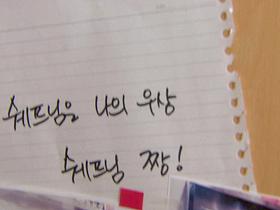 쉐프님은 나의 우상
쉐프님 짱!